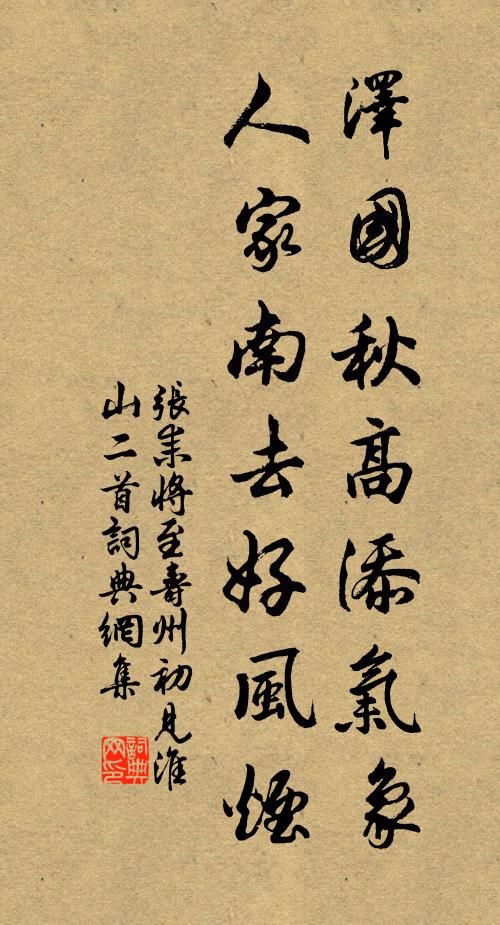 澤國秋高添氣象
人家南去好風煙
張耒將至壽州初見淮
山二首詞典網集
詞典网印